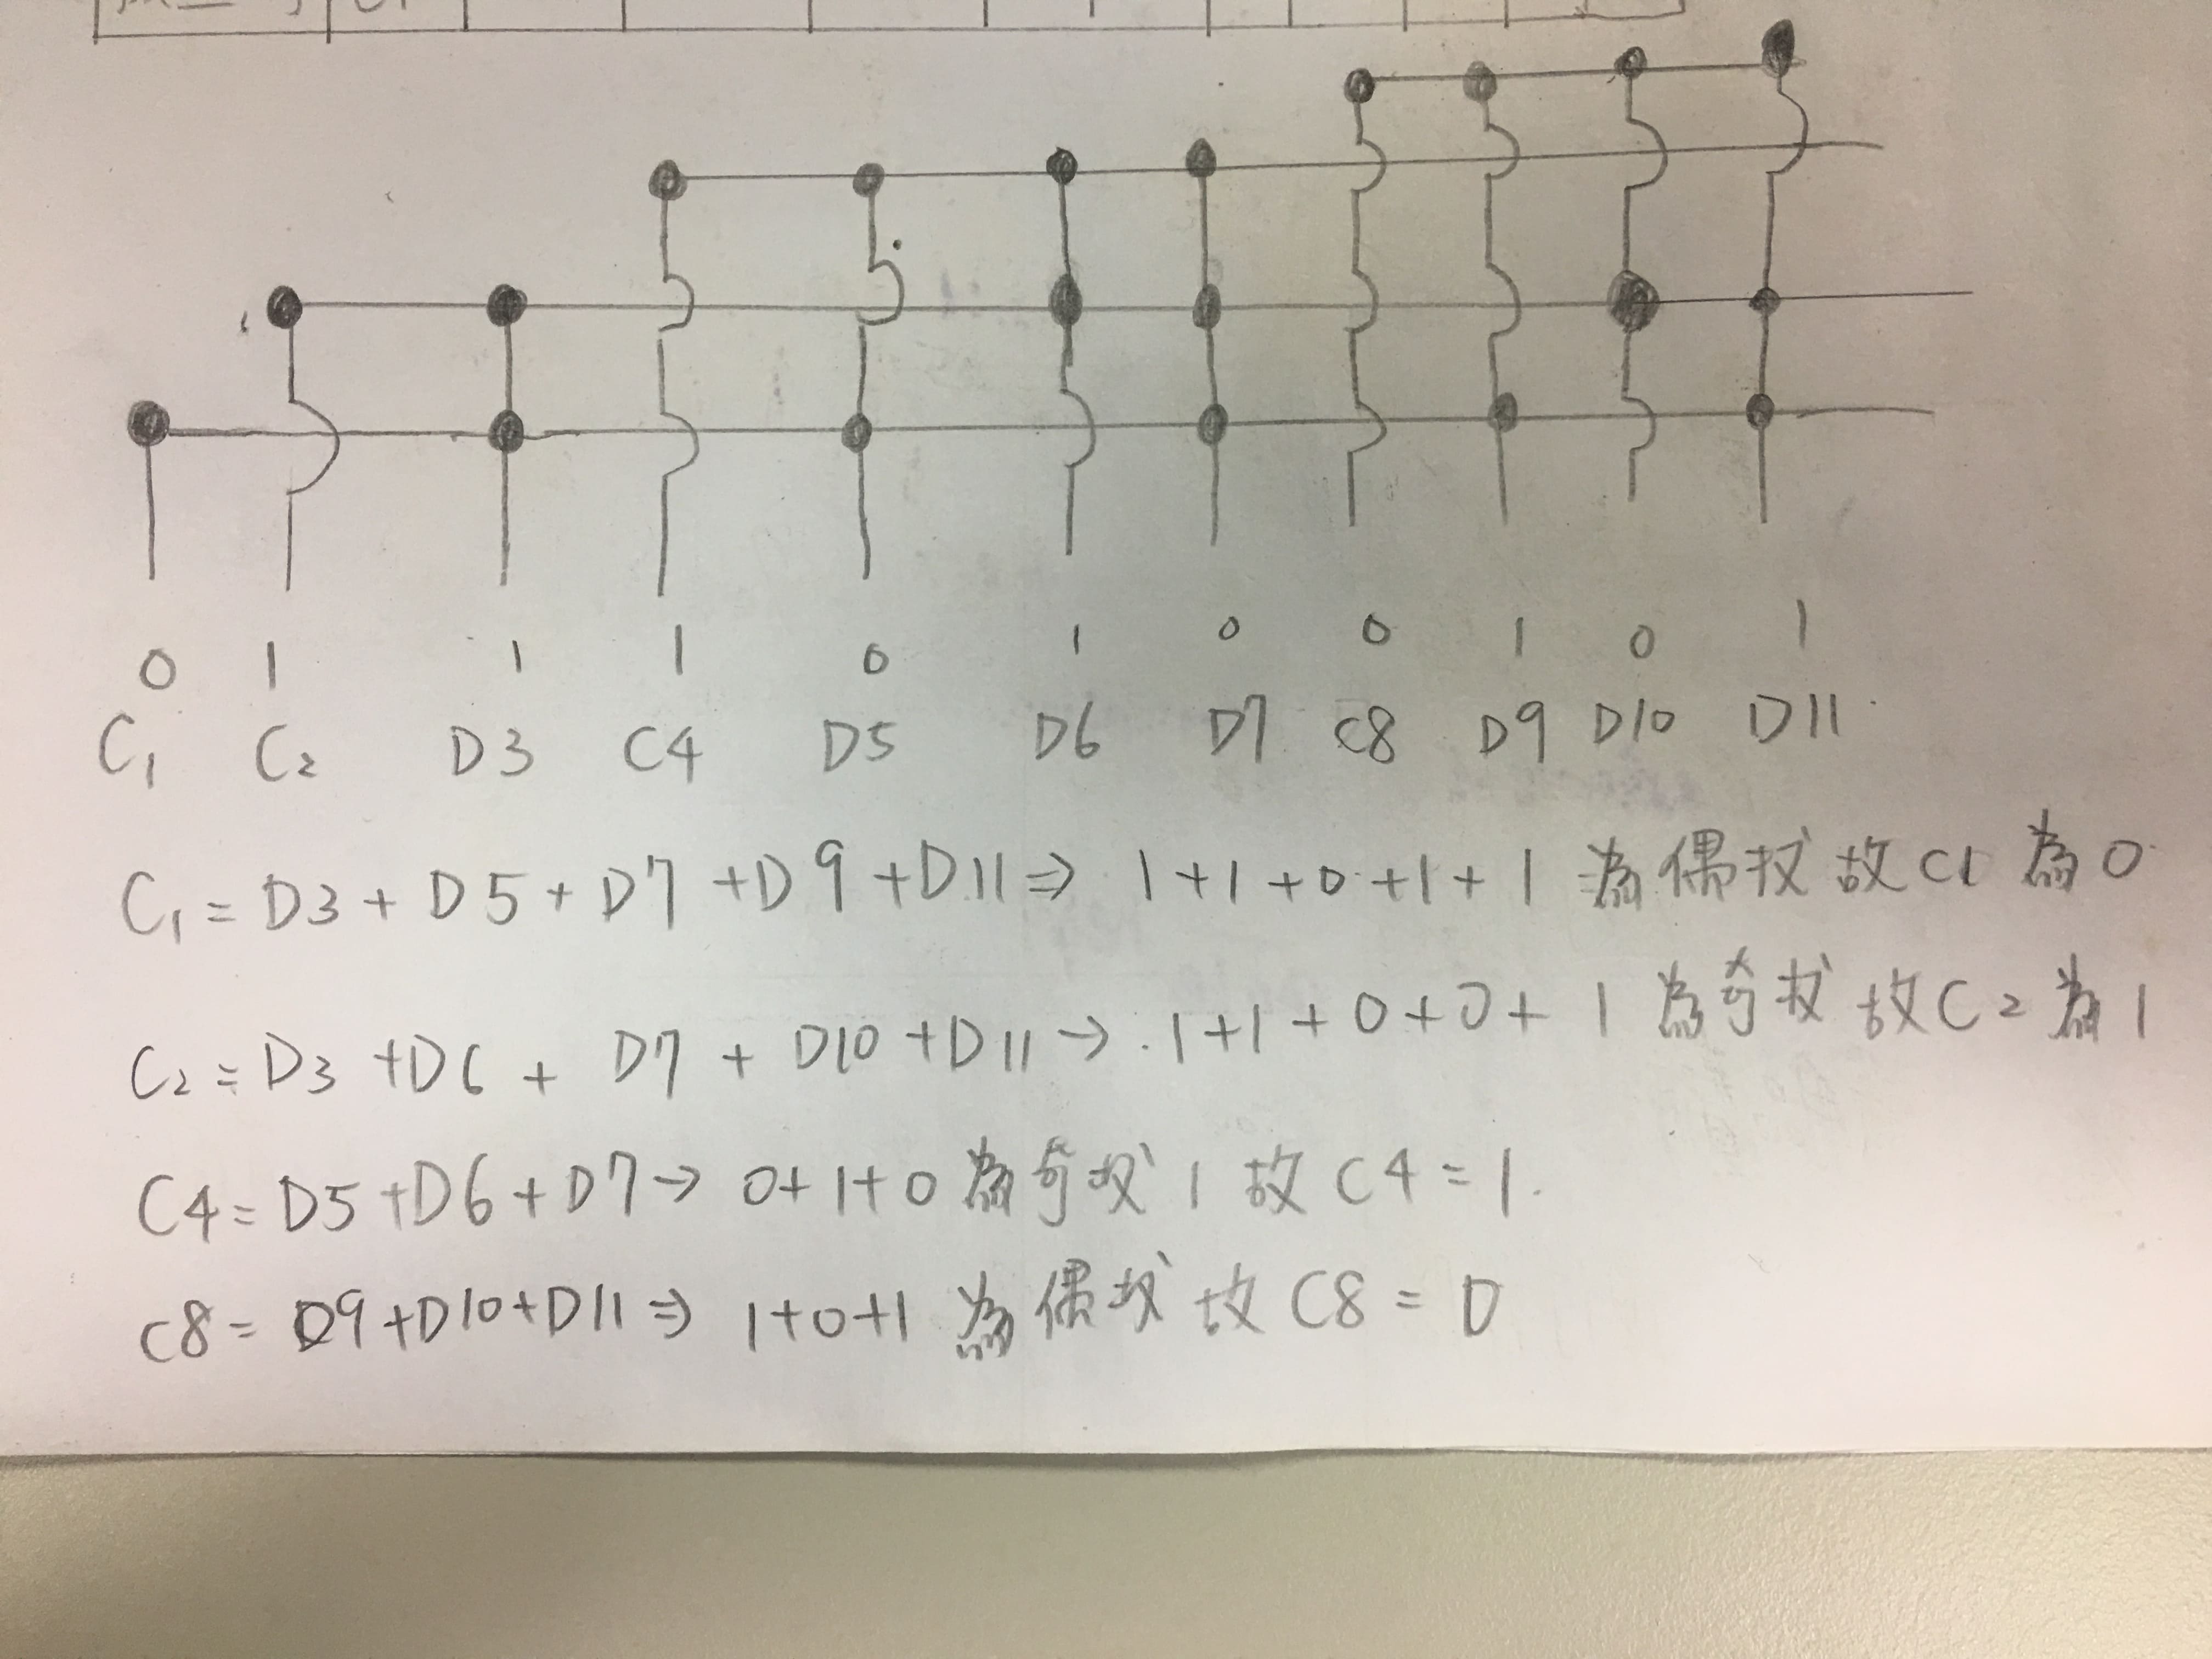 0 1 1 1 0 1 0 0 1 0 1
C₁ C₂ D3 C4 D5 D6 D7 C8 D9 D10 D11
C₁ = D3 + D5 + D7 + D9 + D11 ⇒ 1+1+0+1+1 為偶数故C1為0
C₂ = D3 + D6 + D7 + D10 + D11 → 1+1+0+0+1 為奇数故C2為1
C4 = D5 + D6 + D7 → 0+1+0 為奇数1故C4=1.
C8 = D9 + D10 + D11 ⇒ 1+0+1 為偶数故C8=0